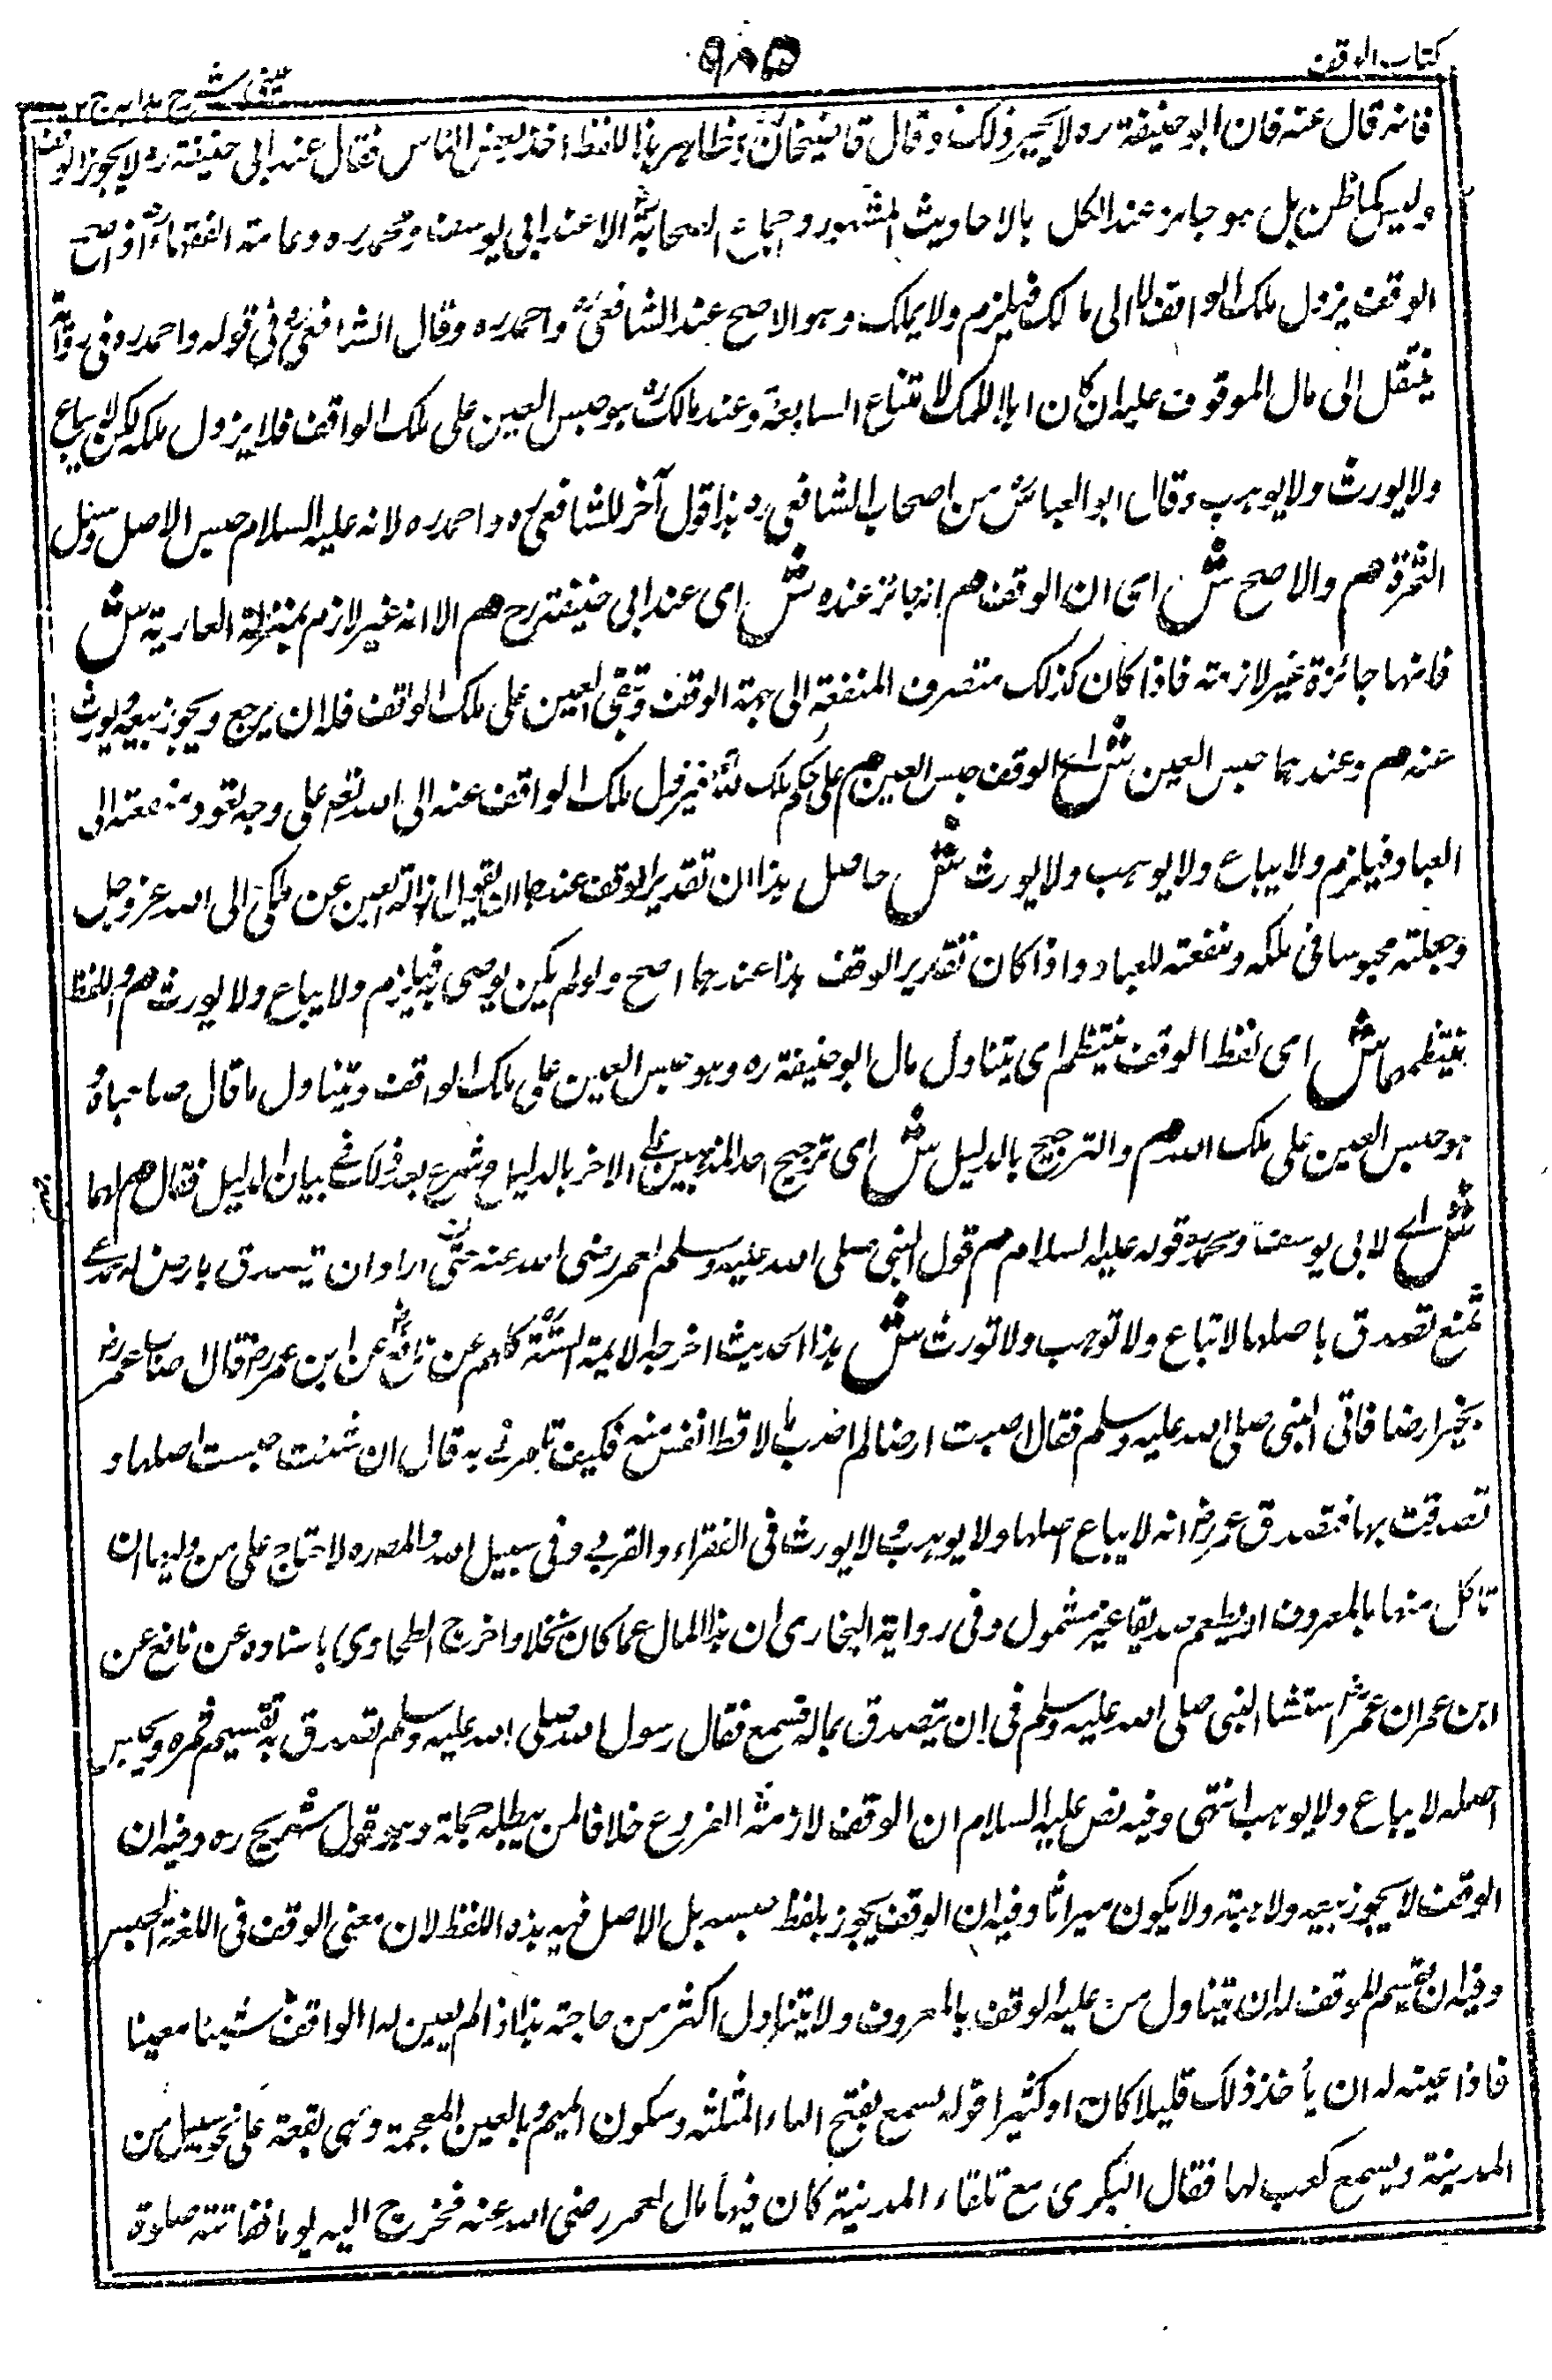 كتاب الوقف
٩٨٥
عينى شرح هدايه ج ٢
فانه قال عنه فان ابو حنيفة ره لا يجيز ذلك وقال قاضيخان وظاهر هذا اللفظ اخذ بعض الناس فقال عند ابى حنيفة ره لا يجوز الوقف
وليس كما ظن بل هو جائز عند الكل بالاحاديث المشهور واجماع الصحابة الا عند ابى يوسف ومحمد ره وعامة الفقهاء اذ اصح
الوقف يزول ملك الواقف لا الى مالك فيلزم ولا يملك وهو الاصح عند الشافعى واحمد ره وقال الشافعى فى قوله واحمد ره فى رواية
ينتقل الى مال الموقوف عليه ان كان اهلا للملك لامتناع السابعة وعند مالك هو حبس العين على ملك الواقف فلا يزول ملكه لكن لا يباع
ولا يورث ولا يوهب وقال ابو العباس من اصحاب الشافعى ره هذا قول آخر للشافعى ره واحمد ره لانه عليه السلام حبس الاصل وسبل
الثمرة هم والاصح ش اى ان الوقف هم انه جائز عنده ش اى عند ابى حنيفة رح هم الا انه غير لازم بمنزلة العارية ش
فانها جائزة غير لازمة فاذا كان كذلك متصرف المنفعة الى جهة الوقف وتبقى العين على ملك الواقف فله ان يرجع ويجوز بيعه ويورث
عنه هم وعندهما حبس العين ش اے الوقف حبس العين هم على حكم ملك الله فيزول ملك الواقف عنه الى الله تعم على وجه تعود منفعته الى
العباد فيلزم ولا يباع ولا يوهب ولا يورث ش حاصل هذا ان تقدير الوقف عندهما ان يقول ازالة العين عن ملكى الى الله عز وجل
وجعلته محبوسا فى ملكه ومنفعته للعباد واذا كان تقدير الوقف هذا عندهما اصح ولو لم يكن يوصى به فيلزم ولا يباع ولا يورث هم واللفظ
ينتظمهما ش اى لفظ الوقف ينتظم اى يتناول مال ابو حنيفة ره وهو حبس العين على ملك الواقف ويتناول ما قال صاحباه و
هو حبس العين على ملك الله هم والترجيح بالدليل ش اى ترجيح احد المذهبين على الاخر بالدليل وشرع بعد ذلك فى بيان الدليل فقال هم لهما
ش اے لابى يوسف ومحمد ره قوله عليه السلام هم قول النبى صلى الله عليه وسلم لعمر رضى الله عنه حتى اراد ان تيصدق بارض له تدعے
ثمغ تصدق باصلها لا تباع ولا توهب ولا تورث ش هذا الحديث اخرجه الايمة الستة كلهم عن نافع عن ابن عمر رض قال اصاب عمر رض
بخيبر ارضا فاتى النبى صلى الله عليه وسلم فقال اصبت ارضا لم اصب مالا قط انفس منه فكيف تامرنى به قال ان شئت حبست اصلها و
تصدقت بها فتصدق عمر رض انه لا يباع اصلها ولا يوهب ولا يورث فى الفقراء والقربى وفى سبيل الله لا جناح على من وليها ان
تاكل منها بالمعروف او يطعم صديقا غير متمول وفى رواية البخارى ان هذا المال عما كان نخلا واخرج الطحاوى باسناده عن نافع عن
ابن عمر ان عمر استشا النبى صلى الله عليه وسلم فى ان يتصدق بماله فسمع فقال رسول الله صلى الله عليه وسلم تصدق به تقسيم ثمره ويحبس
اصله لا يباع ولا يوهب انتهى وفيه نص عليه السلام ان الوقف لازمة الفروع خلافا لمن يبطله جملة وهو قول شريح ره وفيه ان
الوقف لا يجوز بيعه ولا هبته ولا يكون ميراثا وفيه ان الوقف يجوز بلفظ حبسه بل الاصل فيه هذه اللفظ لان معنى الوقف فى اللغة الحبس
وفيه ان تقسيم الموقف له ان يتناول من عليه الوقف بالمعروف ولا يتناول اكثر من حاجته هذا اذا لم يعين له الواقف شيئا معينا
فاذا عينه له ان يأخذ ذلك قليلا كان او كثيرا قوله يسمع بفتح الهاء المثلثه وسكون الميم وبالعين المعجمة وهى بقعة على نحو سبيل من
المدينة ويسمع كعب لها فقال البكرى مع تلقاء المدينة كان فيها مال لعمر رضى الله عنه فخرج اليه يوما ففاتته صلوة